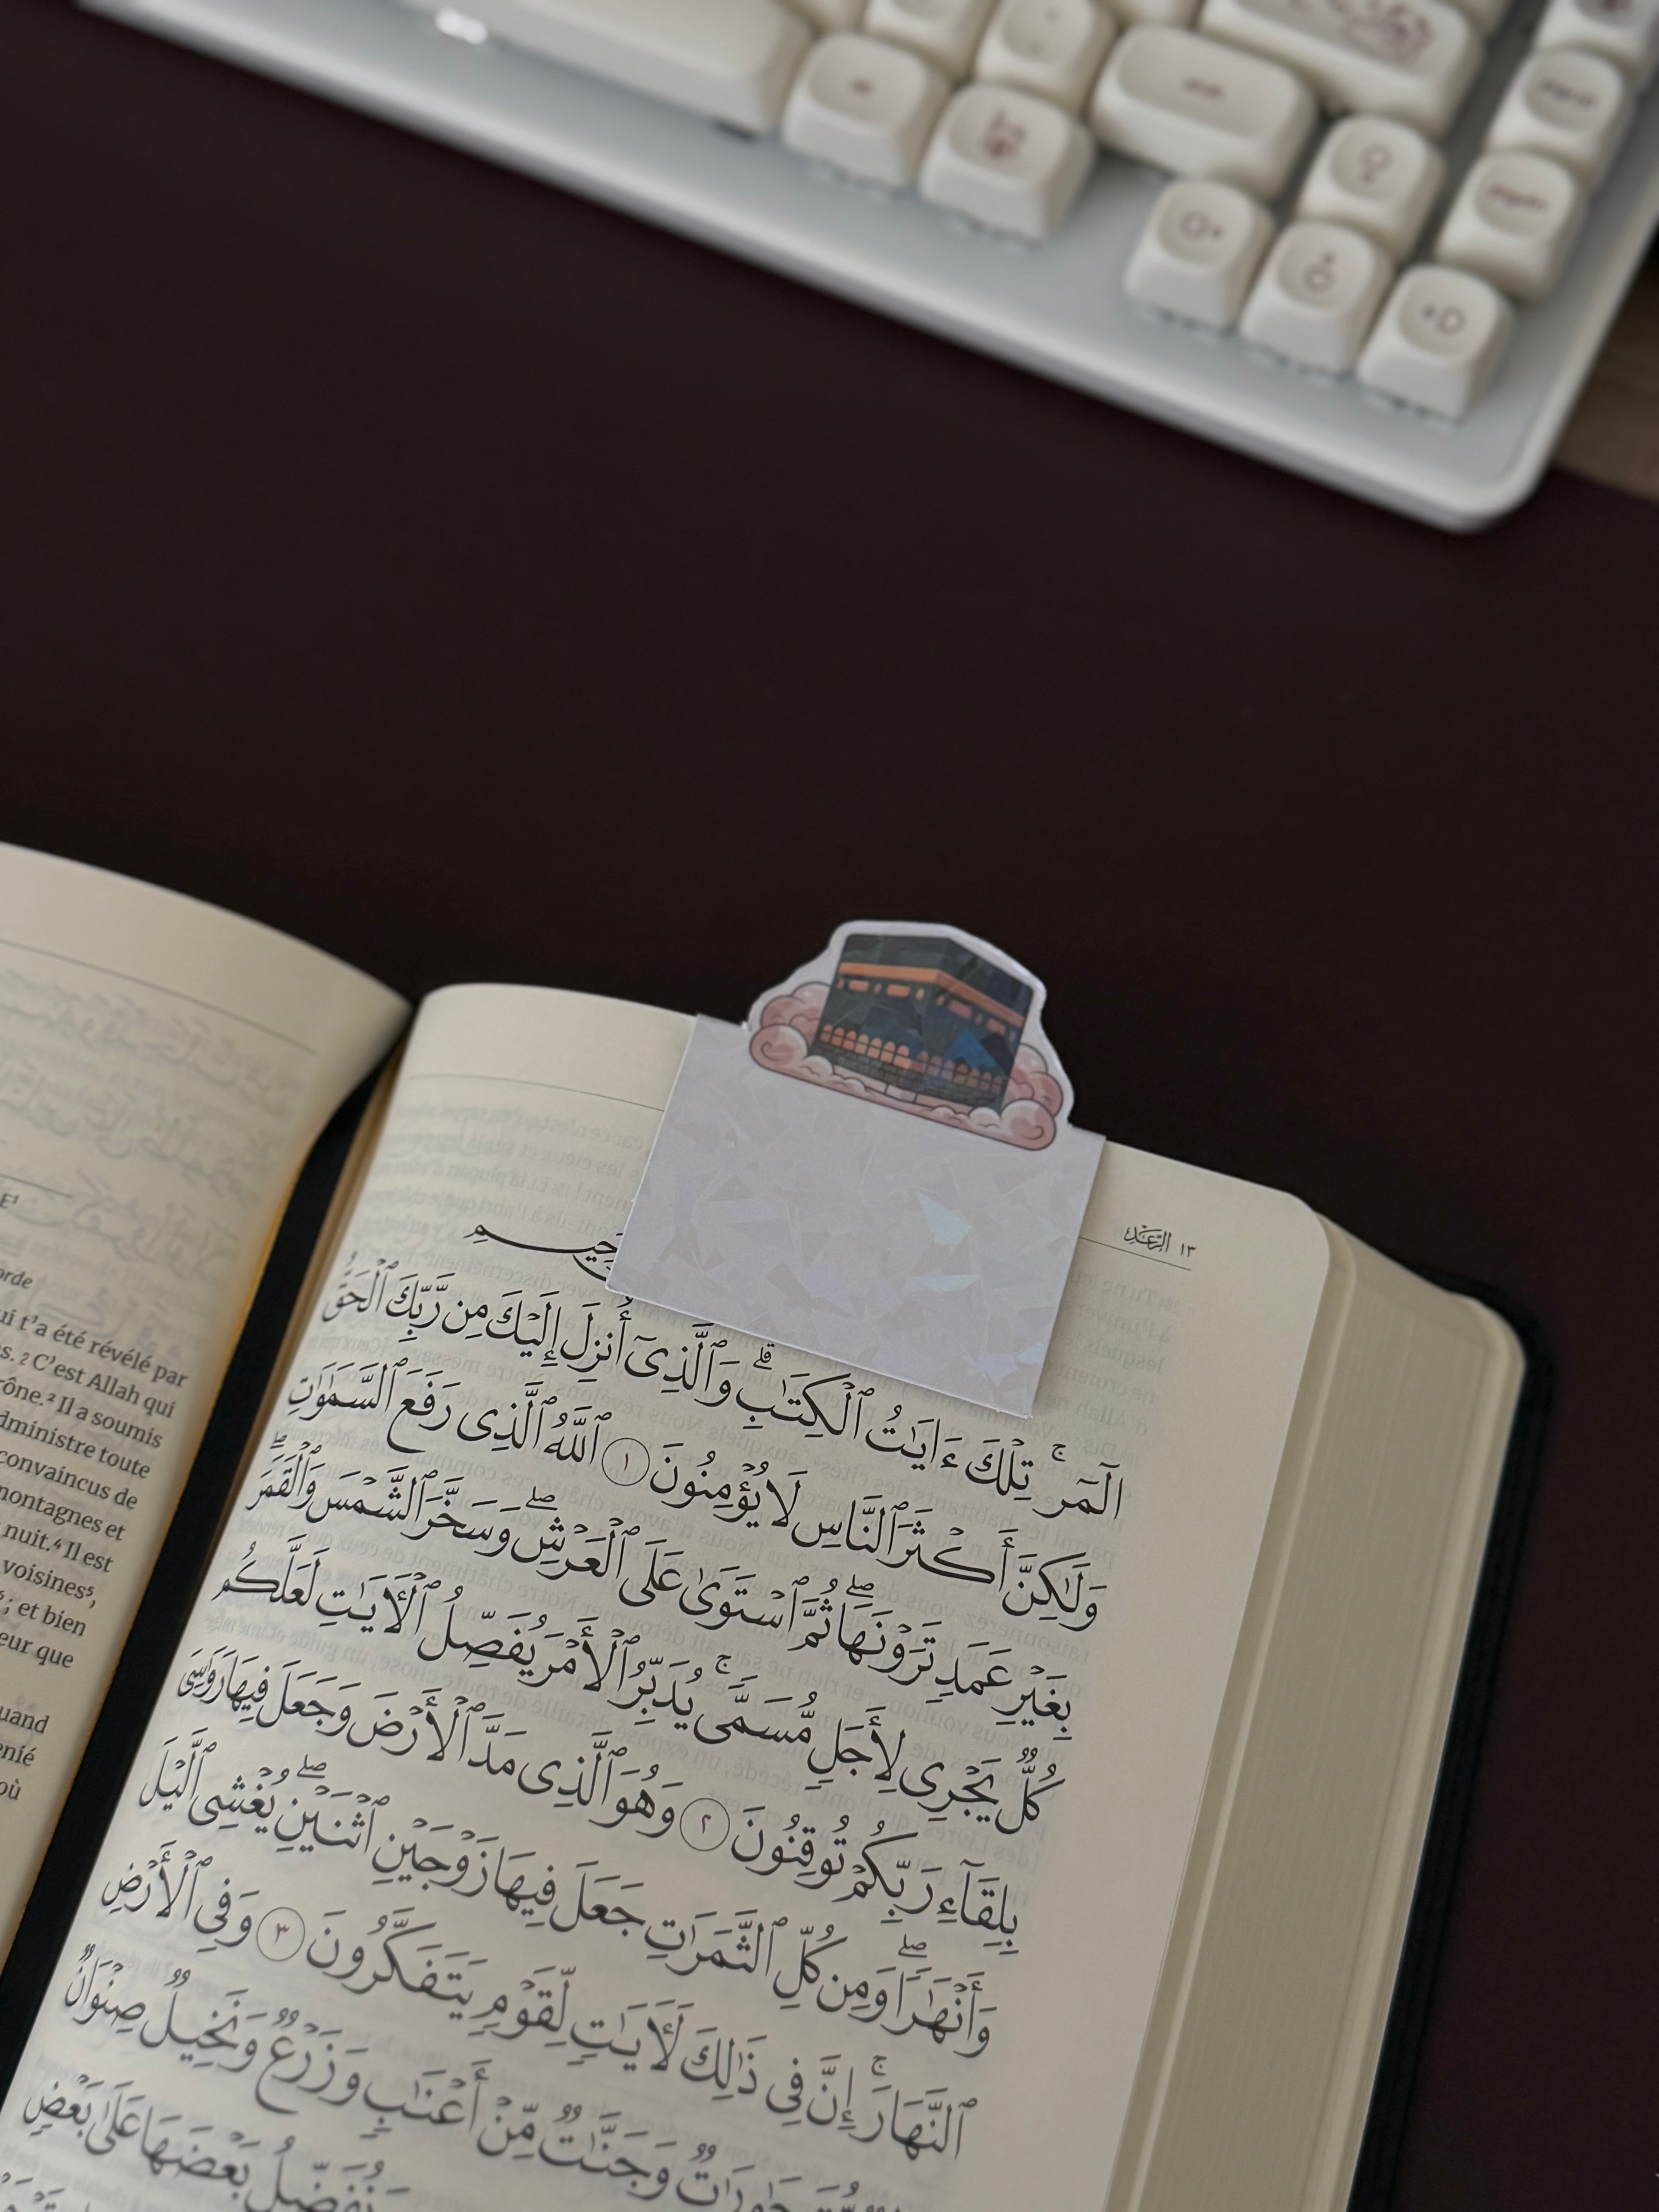 ١٣ الرَّعْدِ
الٓمٓر ۚ تِلْكَ ءَايَٰتُ ٱلْكِتَٰبِ ۗ وَٱلَّذِىٓ أُنزِلَ إِلَيْكَ مِن رَّبِّكَ ٱلْحَقُّ
وَلَٰكِنَّ أَكْثَرَ ٱلنَّاسِ لَا يُؤْمِنُونَ ١ ٱللَّهُ ٱلَّذِى رَفَعَ ٱلسَّمَٰوَٰتِ
بِغَيْرِ عَمَدٍ تَرَوْنَهَا ۖ ثُمَّ ٱسْتَوَىٰ عَلَى ٱلْعَرْشِ ۖ وَسَخَّرَ ٱلشَّمْسَ وَٱلْقَمَرَ ۖ
كُلٌّ يَجْرِى لِأَجَلٍ مُّسَمًّى ۚ يُدَبِّرُ ٱلْأَمْرَ يُفَصِّلُ ٱلْءَايَٰتِ لَعَلَّكُم
بِلِقَآءِ رَبِّكُمْ تُوقِنُونَ ٢ وَهُوَ ٱلَّذِى مَدَّ ٱلْأَرْضَ وَجَعَلَ فِيهَا رَوَٰسِىَ
وَأَنْهَٰرًا ۖ وَمِن كُلِّ ٱلثَّمَرَٰتِ جَعَلَ فِيهَا زَوْجَيْنِ ٱثْنَيْنِ ۖ يُغْشِى ٱلَّيْلَ
ٱلنَّهَارَ ۚ إِنَّ فِى ذَٰلِكَ لَءَايَٰتٍ لِّقَوْمٍ يَتَفَكَّرُونَ ٣ وَفِى ٱلْأَرْضِ
وَجَنَّٰتٌ مِّنْ أَعْنَٰبٍ وَزَرْعٌ وَنَخِيلٌ صِنْوَانٌ
بَعْضَهَا عَلَىٰ بَعْضٍ
E¹
orde
ui t’a été révélé par
s. 2 C’est Allah qui
rône.² Il a soumis
dministre toute
convaincus de
montagnes et
nuit.⁴ Il est
voisines⁵,
; et bien
eur que
uand
enié
où